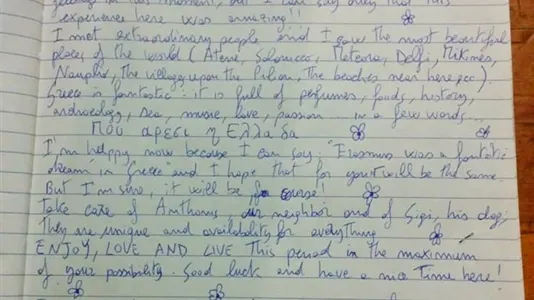 feelings in this moment, but I can say only that this
experience here was amazing!!
I met extraordinary people and I saw the most beautiful
places of the world (Atene, Salonicco, Meteora, Delfi, Mikines,
Nauplio, the village upon the Pilion, The beaches near here ecc)
Greece is fantastic: it is full of perfumes, foods, history,
archaeology, sea, music, love, passion ... in a few words...
Που αρεσι η Ελλαδα
I'm happy now because I can say: "Erasmus was a fantastic
dream in Greece" and I hope that for you it will be the same.
But I'm sure, it will be of course!
Take care of Anthonis our neighbor and of Gigi, his dog;
they are unique and availability for everything
ENJOY, LOVE AND LIVE This period in the maximum
of your possibility. Good luck and have a nice Time here!